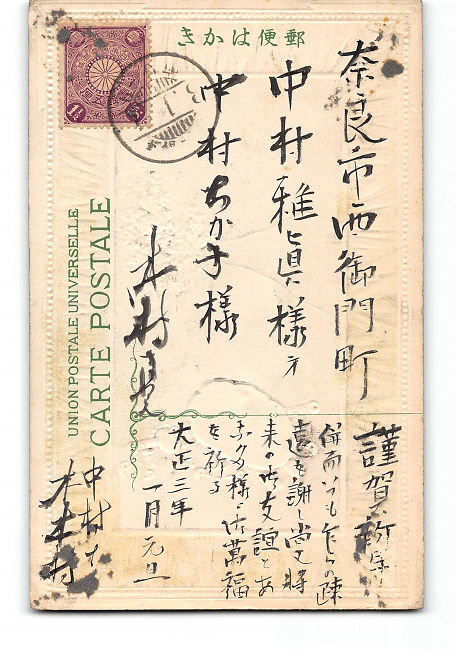 郵便はかき
奈良市西御門町
中村雅真様
中村ちか子様
木村
UNION POSTALE UNIVERSELLE
CARTE POSTALE
謹賀新年
併而いつも乍らの疎
遠を謝し尚又将
来の御友誼と
様の御萬福
を祈る
大正三年
一月元旦
中村
木村
1½